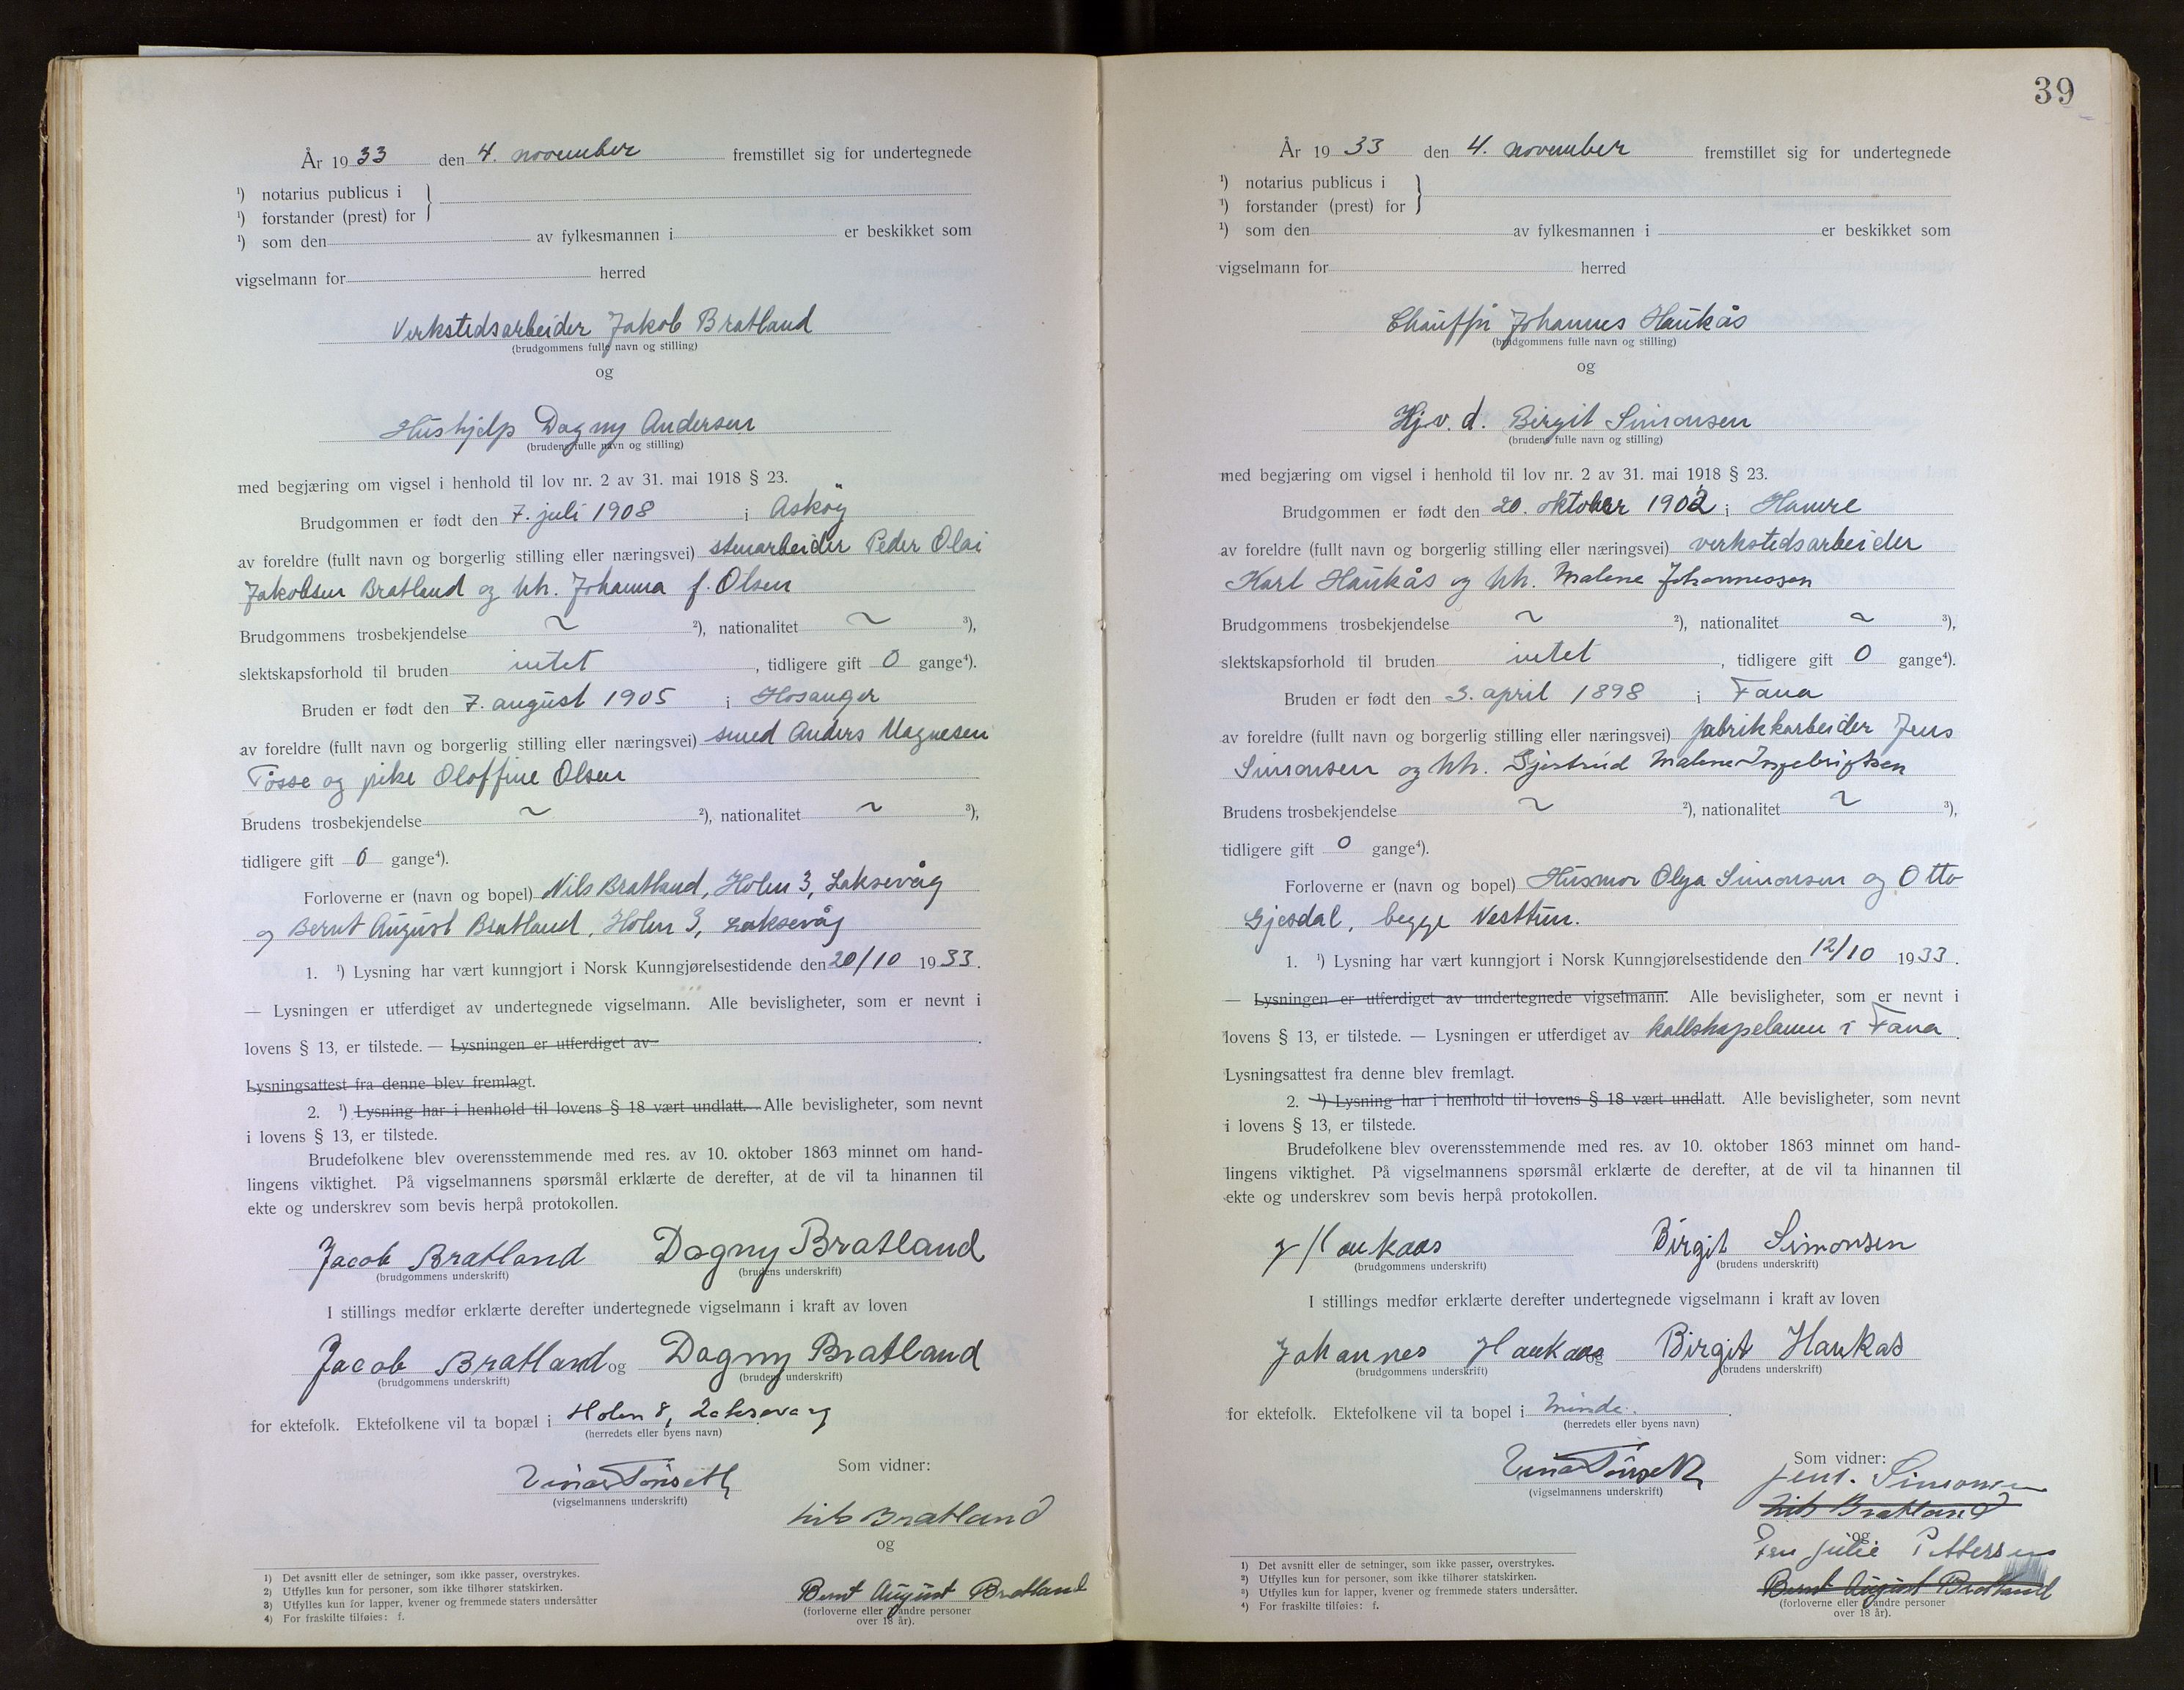 År 19 33 den 4. november fremstillet sig for undertegnede
¹) notarius publicus i
¹) forstander (prest) for
¹) som den av fylkesmannen i er beskikket som
vigselmann for herred
Verkstedsarbeider Jakob Bratland
(brudgommens fulle navn og stilling)
og
Hushjelp Dagny Andersen
(brudens fulle navn og stilling)
med begjæring om vigsel i henhold til lov nr. 2 av 31. mai 1918 § 23.
Brudgommen er født den 7. juli 1908 i Askøy
av foreldre (fullt navn og borgerlig stilling eller næringsvei) stenarbeider Peder Olai
Jakobsen Bratland og hh. Johanna f. Olsen
Brudgommens trosbekjendelse ~ ²), nationalitet ~ ³),
slektskapsforhold til bruden intet, tidligere gift 0 gange⁴).
Bruden er født den 7. august 1905 i Hosanger
av foreldre (fullt navn og borgerlig stilling eller næringsvei) smed Anders Magnesen
Tøsse og pike Oloffine Olsen
Brudens trosbekjendelse ~ ²), nationalitet ~ ³),
tidligere gift 0 gange⁴).
Forloverne er (navn og bopel) Nils Bratland, Holen 3, Laksevåg
og Bernt August Bratland, Holen 3, Laksevåg
1. ¹) Lysning har vært kunngjort i Norsk Kunngjørelsestidende den 20/10 1933.
— Lysningen er utferdiget av undertegnede vigselmann. Alle bevisligheter, som er nevnt i
lovens § 13, er tilstede. — Lysningen er utferdiget av .
Lysningsattest fra denne blev fremlagt.
2. ¹) Lysning har i henhold til lovens § 18 vært undlatt. Alle bevisligheter, som nevnt
i lovens § 13, er tilstede.
Brudefolkene blev overensstemmende med res. av 10. oktober 1863 minnet om hand-
lingens viktighet. På vigselmannens spørsmål erklærte de derefter, at de vil ta hinannen til
ekte og underskrev som bevis herpå protokollen.
Jacob Bratland Dagny Bratland
(brudgommens underskrift) (brudens underskrift)
I stillings medfør erklærte derefter undertegnede vigselmann i kraft av loven
Jacob Bratland og Dagny Bratland
(brudgommens underskrift) (brudens underskrift)
for ektefolk. Ektefolkene vil ta bopæl i Holen 8, Laksevaag
(herredets eller byens navn)
Einar Tönseth
(vigselmannens underskrift)
Som vidner:
Nils Bratland
og
Bernt August Bratland
(forloverne eller 2 andre personer
over 18 år).
1) Det avsnitt eller de setninger, som ikke passer, overstrykes.
2) Utfylles kun for personer, som ikke tilhører statskirken.
3) Utfylles kun for lapper, kvener og fremmede staters undersåtter
4) For fraskilte tilføies: f.
39
År 19 33 den 4. november fremstillet sig for undertegnede
¹) notarius publicus i
¹) forstander (prest) for
¹) som den av fylkesmannen i er beskikket som
vigselmann for herred
Chauffør Johannes Haukås
(brudgommens fulle navn og stilling)
og
Hj.v.d. Birgit Simonsen
(brudens fulle navn og stilling)
med begjæring om vigsel i henhold til lov nr. 2 av 31. mai 1918 § 23.
Brudgommen er født den 20. oktober 1902 i Hamre
av foreldre (fullt navn og borgerlig stilling eller næringsvei) verkstedsarbeider
Karl Haukås og hh. Malene Johannessen
Brudgommens trosbekjendelse ~ ²), nationalitet ~ ³),
slektskapsforhold til bruden intet, tidligere gift 0 gange⁴).
Bruden er født den 3. april 1898 i Fana
av foreldre (fullt navn og borgerlig stilling eller næringsvei) fabrikkarbeider Jens
Simonsen og hh. Gjertrud Malene Ingebrigtsen
Brudens trosbekjendelse ~ ²), nationalitet ~ ³),
tidligere gift 0 gange⁴).
Forloverne er (navn og bopel) Husmor Olga Simonsen og Otto
Gjesdal, begge Nesttun.
1. ¹) Lysning har vært kunngjort i Norsk Kunngjørelsestidende den 12/10 1933.
— Lysningen er utferdiget av undertegnede vigselmann. Alle bevisligheter, som er nevnt i
lovens § 13, er tilstede. — Lysningen er utferdiget av kallskapelanen i Fana.
Lysningsattest fra denne blev fremlagt.
2. ¹) Lysning har i henhold til lovens § 18 vært undlatt. Alle bevisligheter, som nevnt
i lovens § 13, er tilstede.
Brudefolkene blev overensstemmende med res. av 10. oktober 1863 minnet om hand-
lingens viktighet. På vigselmannens spørsmål erklærte de derefter, at de vil ta hinannen til
ekte og underskrev som bevis herpå protokollen.
J Haukaas Birgit Simonsen
(brudgommens underskrift) (brudens underskrift)
I stillings medfør erklærte derefter undertegnede vigselmann i kraft av loven
Johannes Haukaas og Birgit Haukas
(brudgommens underskrift) (brudens underskrift)
for ektefolk. Ektefolkene vil ta bopel i Minde.
(herredets eller byens navn)
Einar Tönseth
(vigselmannens underskrift)
Som vidner:
Jens. Simonsen
Nils Bratland
og
Fru Julie Pettersen
Bernt August Bratland
(forloverne eller 2 andre personer
over 18 år).
1) Det avsnitt eller de setninger, som ikke passer, overstrykes.
2) Utfylles kun for personer, som ikke tilhører statskirken.
3) Utfylles kun for lapper, kvener og fremmede staters undersåtter.
4) For fraskilte tilføies: f.